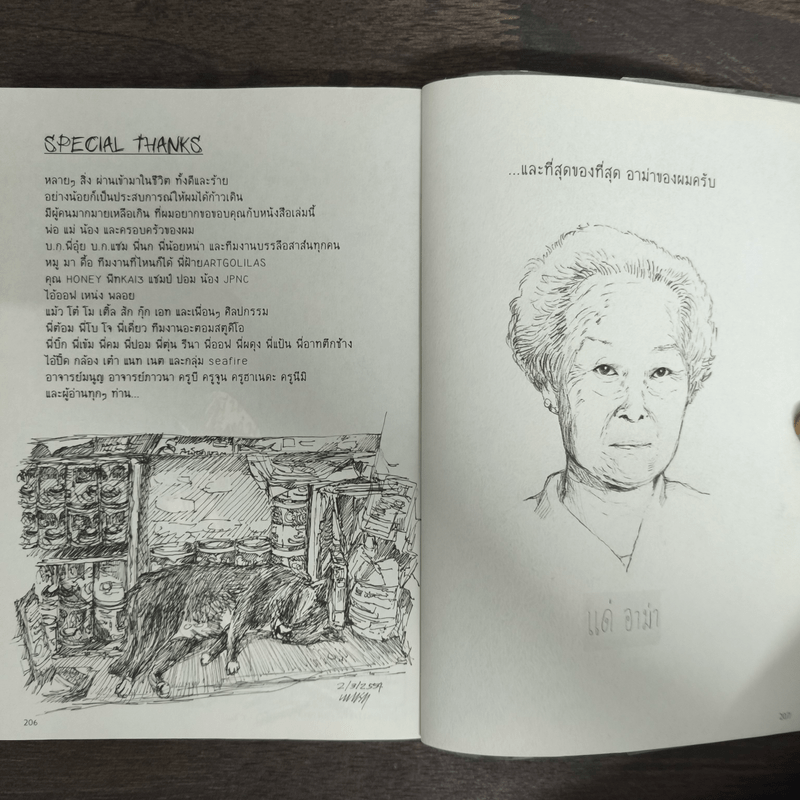 SPECIAL THANKS
หลายๆ สิ่ง ผ่านเข้ามาในชีวิต ทั้งดีและร้าย
อย่างน้อยก็เป็นประสบการณ์ให้ผมได้ก้าวเดิน
มีผู้คนมากมายเหลือเกิน ที่ผมอยากขอขอบคุณกับหนังสือเล่มนี้
พ่อ แม่ น้อง และครอบครัวของผม
บ.ก.พี่อุ๋ย บ.ก.แชม พี่นก พี่น้อยหน่า และทีมงานบรรลือสาส์นทุกคน
หมู มา ดื้อ ทีมงานที่ไหนก็ได้ พี่ฝ้ายARTGOLILAS
คุณ HONEY พิทKAI3 แชมป์ ปอม น้อง JPNC
ไอ้ออฟ เหน่ง พลอย
แม้ว โต๋ โม เติ้ล สัก กุ๊ก เอท และเพื่อนๆ ศิลปกรรม
พี่ต้อม พี่โบ โจ พี่เดี่ยว ทีมงานอะตอมสตูดิโอ
พี่บิ๊ก พี่เข้ม พี่คม พี่ปอม พี่ตุ่น รีนา พี่ออฟ พี่ผดุง พี่แป้น พี่อาทตึกช้าง
ไอ้ปื๊ด กล้อง เต๋า แนท เนต และกลุ่ม seafire
อาจารย์มนูญ อาจารย์ภาวนา ครูบี ครูจูน ครูฮาเนดะ ครูนีมิ
และผู้อ่านทุกๆ ท่าน...
2/9/2554
206
...และที่สุดของที่สุด อาม่าของผมครับ
แด่ อาม่า
207